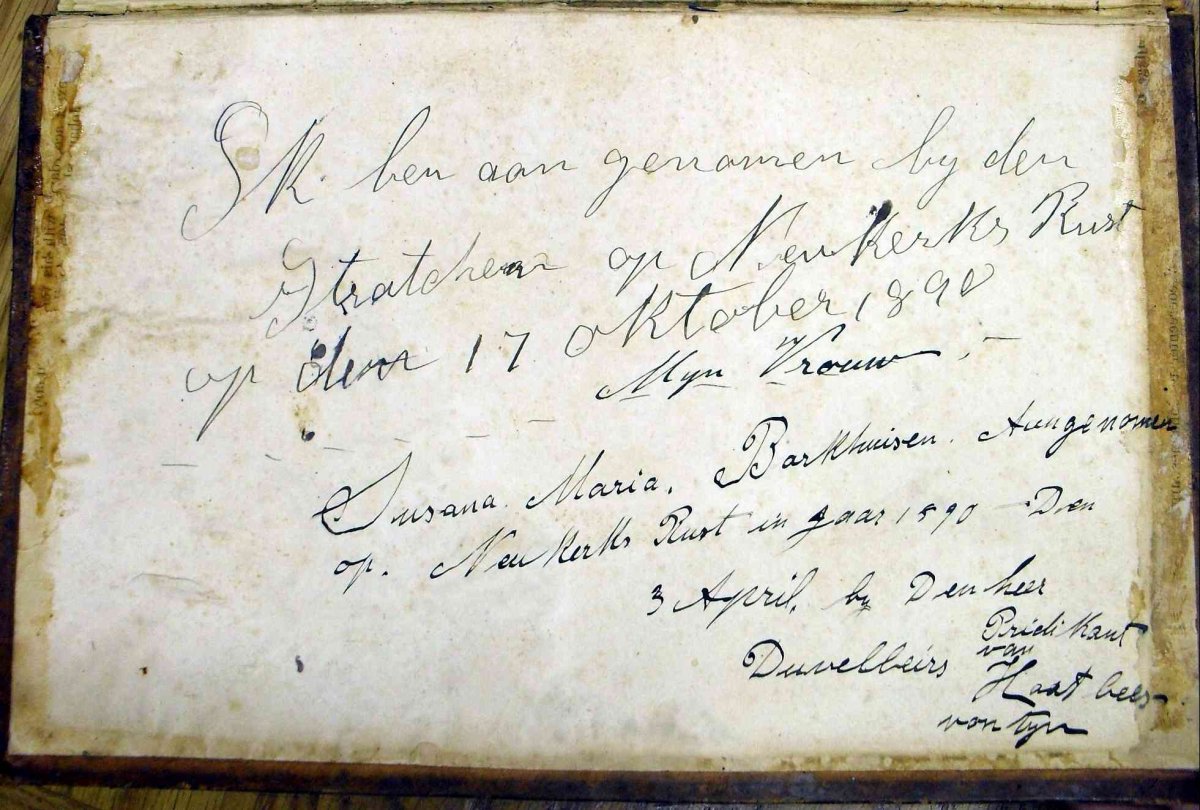 Ik ben aan genomen by den
Stratchen op NeuKerKs Rust
op den 17 oktober 1890
Myn Vrouw
Susana Maria, Barkhuisen. Aungenomen
op. NeuKerKs Rust in Jaar 1890 Den
3 April, by Den heer
Duvelbeirs Pridikant
van
Haat bees
vontyn